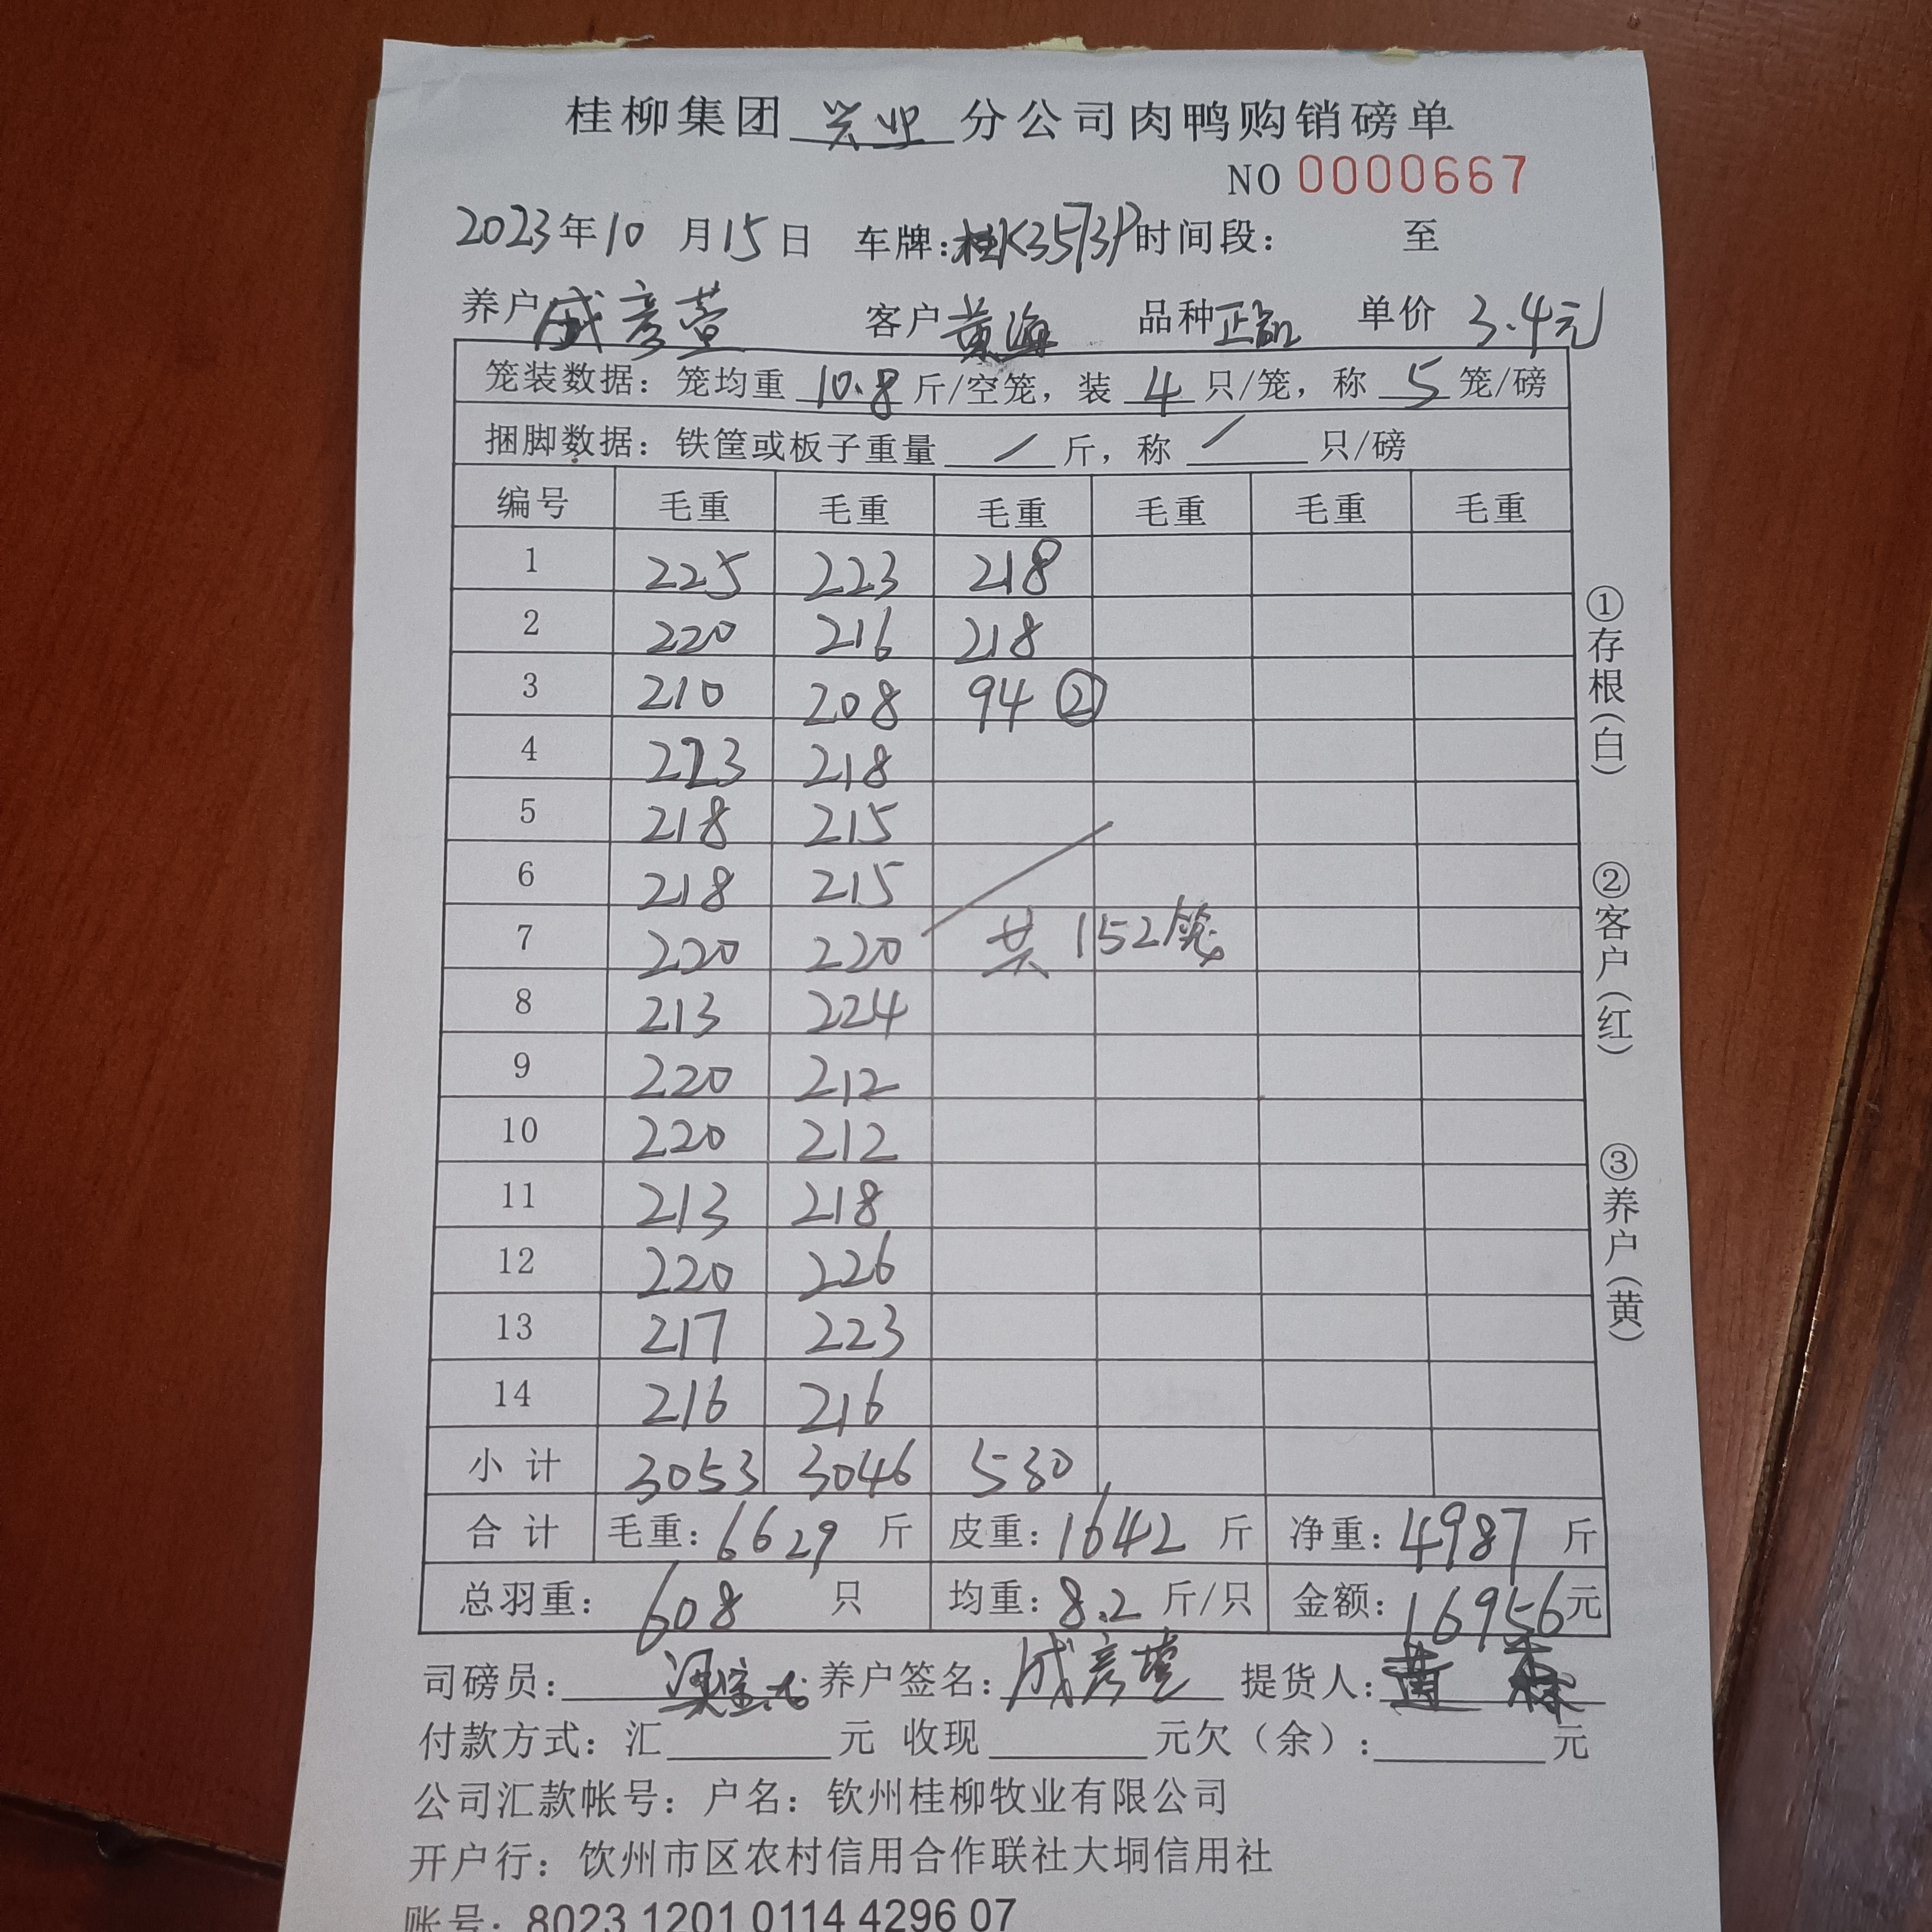 桂柳集团 兴业 分公司肉鸭购销磅单
NO 0000667
2023年10月15日 车牌:桂K3573P 时间段: 至
养户 成彦萱 客户 黄海 品种 正品 单价 3.4元
笼装数据: 笼均重 10.8 斤/空笼, 装 4 只/笼, 称 5 笼/磅
捆脚数据: 铁筐或板子重量 / 斤, 称 / 只/磅
编号 毛重 毛重 毛重 毛重 毛重 毛重
1 225 223 218
2 220 216 218
3 210 208 94 ②
4 223 218
5 218 215
6 218 215
7 220 220 共152笼
8 213 224
9 220 212
10 220 212
11 213 218
12 220 226
13 217 223
14 216 216
小计 3053 3046 530
合计 毛重: 6629 斤 皮重: 1642 斤 净重: 4987 斤
总羽重: 608 只 均重: 8.2 斤/只 金额: 16956元
司磅员: 养户签名: 成彦萱 提货人: 黄
付款方式: 汇 元 收现 元欠(余): 元
公司汇款帐号: 户名: 钦州桂柳牧业有限公司
开户行: 钦州市区农村信用合作联社大垌信用社
账号: 8023 1201 0114 4296 07
①存根(白)
②客户(红)
③养户(黄)